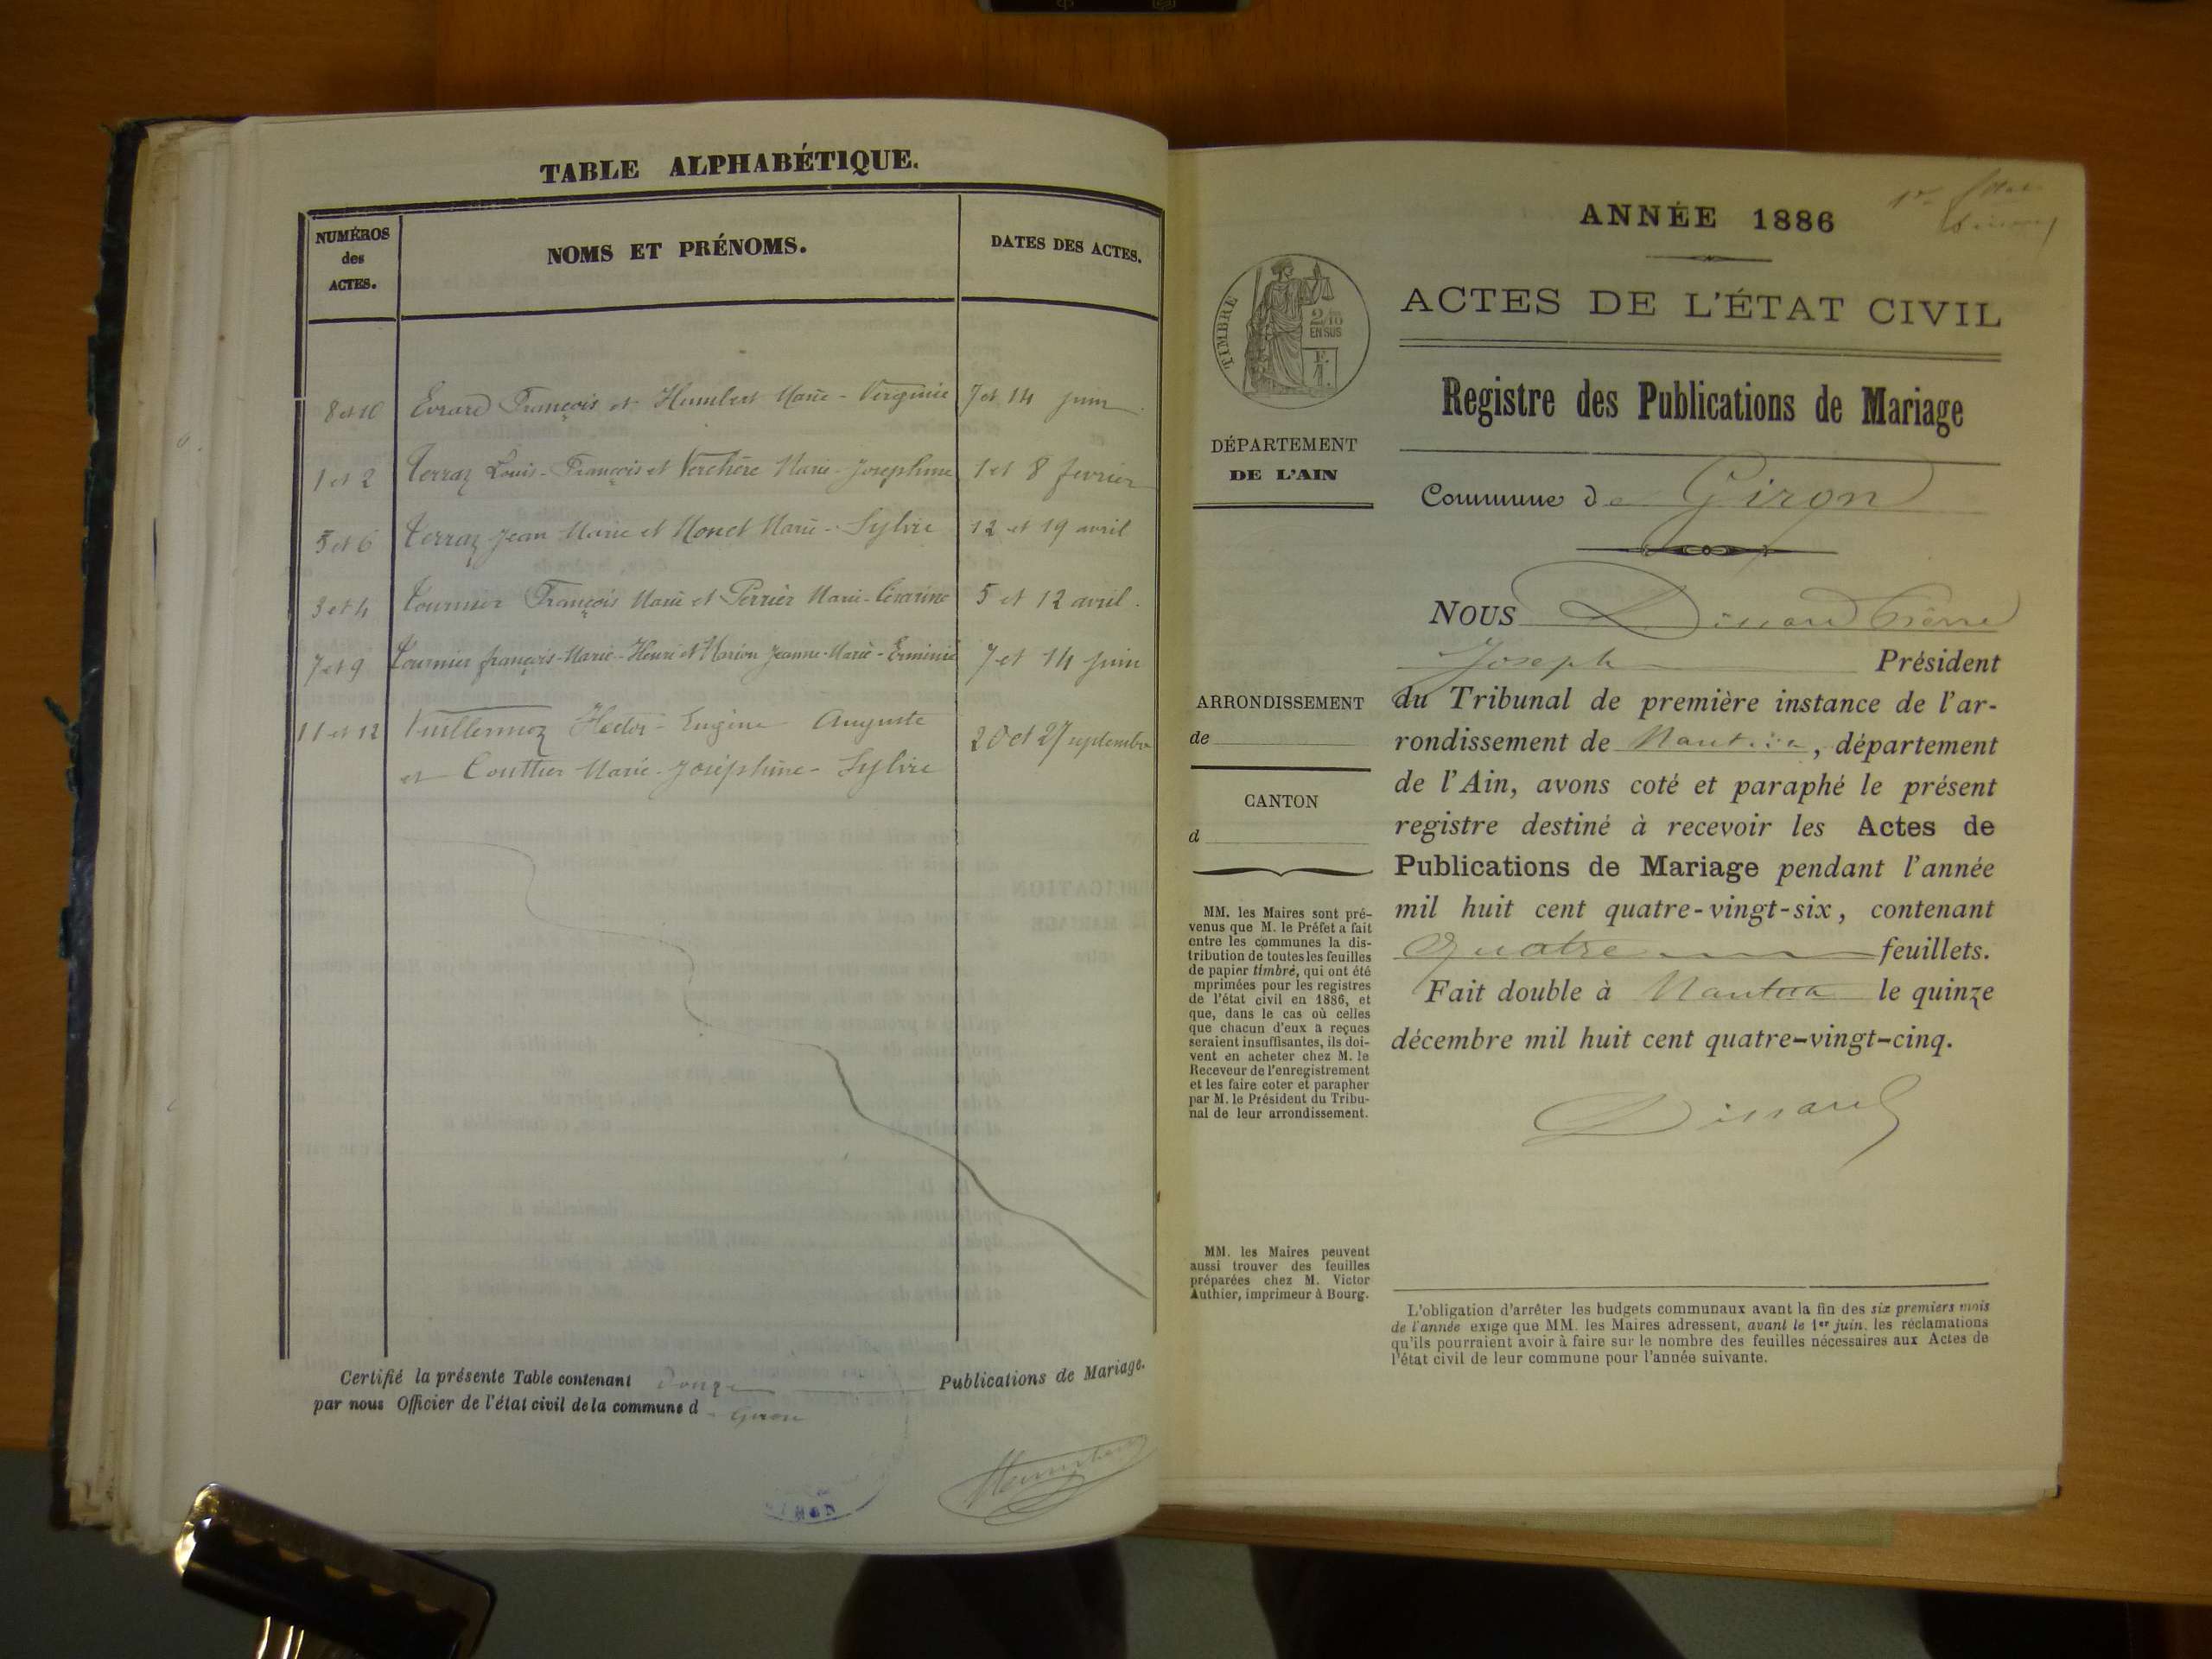 TABLE ALPHABÉTIQUE.
NUMÉROS
des
ACTES.
NOMS ET PRÉNOMS.
DATES DES ACTES.
8 et 10 Evrard François et Humbert Marie - Virginie 7 et 14 juin
1 et 2 Terraz Louis - François et Verchère Marie - Josephine 1 et 8 fevrier
5 et 6 Terraz Jean Marie et Monet Marie - Sylvie 12 et 19 avril
3 et 4 Tournier François Marie et Perrier Marie - Césarine 5 et 12 avril.
7 et 9 Tournier françois - Marie - Henri et Marion Jeanne - Marie - Erminie 7 et 14 juin
11 et 12 Vuillermoz Hector - Eugène Auguste
et Couttier Marie - Joséphine - Sylvie
20 et 27 septembre
Certifié la présente Table contenant douze Publications de Mariage.
par nous Officier de l'état civil de la commune d Giron
Humbert
ANNÉE 1886
ACTES DE L'ÉTAT CIVIL
TIMBRE
2/10
EN SUS
Registre des Publications de Mariage
DÉPARTEMENT
DE L'AIN
Commune de Giron
NOUS Dissard Pierre
Joseph Président
du Tribunal de première instance de l'ar-
rondissement de Nantua, département
de l'Ain, avons coté et paraphé le présent
registre destiné à recevoir les Actes de
Publications de Mariage pendant l'année
mil huit cent quatre-vingt-six, contenant
quatre feuillets.
Fait double à Nantua le quinze
décembre mil huit cent quatre-vingt-cinq.
Dissard
ARRONDISSEMENT
de
CANTON
d
MM. les Maires sont pré-
venus que M. le Préfet a fait
entre les communes la dis-
tribution de toutes les feuilles
de papier timbré, qui ont été
mprimées pour les registres
de l'état civil en 1886, et
que, dans le cas où celles
que chacun d'eux a reçues
seraient insuffisantes, ils doi-
vent en acheter chez M. le
Receveur de l'enregistrement
et les faire coter et parapher
par M. le Président du Tribu-
nal de leur arrondissement.
MM. les Maires peuvent
aussi trouver des feuilles
préparées chez M. Victor
Authier, imprimeur à Bourg.
L'obligation d'arrêter les budgets communaux avant la fin des six premiers mois
de l'année exige que MM. les Maires adressent, avant le 1er juin, les réclamations
qu'ils pourraient avoir à faire sur le nombre des feuilles nécessaires aux Actes de
l'état civil de leur commune pour l'année suivante.